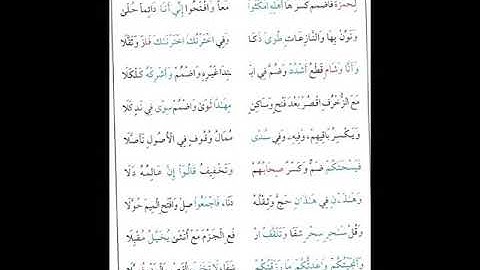 لِحَمْزَةَ فَاضْمُمْ كَسْرَهَا أَهْلِهِ امْكُثُوا مَعًا وَافْتَحُوا إِنِّي أَنَا دَائِمًا حُلَىٰ
وَنَوِّنْ بِهَا وَالنَّازِعَاتِ طُوًى ذَكَا وَفِي اخْتَرْتُكَ اخْتَرْنَٰكَ فَازَ وَثَقَّلَا
وَأَنَّا وَشَامٍ قَطْعُ أَشْدُدْ وَضُمَّ فِي ابْـ ـتِدَا غَيْرِهِ وَاضْمُمْ وَأَشْرِكْهُ كَلْكَلَا
مَعَ الزُّخْرُفِ اقْصُرْ بَعْدَ فَتْحٍ وَسَاكِنٍ مِهَٰدًا ثَوَىٰ وَاضْمُمْ سِوًى فِي نَدٍ كَلَا
وَيَكْسِرُ بَاقِيهِمْ، وَفِيهِ وَفِي سُدًى مُمَالُ وُقُوفٍ فِي الْأُصُولِ تَأَصَّلَا
فَيُسْحِتَكُمْ ضَمٌّ وَكَسْرٌ صِحَابُهُمْ وَتَخْفِيفُ قَالُوا إِنْ عَالِمُهُ دَلَا
وَهَٰذَيْنِ فِي هَٰذَانِ حَجَّ وَثِقْلُهُ دَنَا، فَاجْمَعُوا صِلْ وَافْتَحِ الْمِيمَ حُوَّلَا
وَقُلْ سَٰحِرٍ سِحْرٍ شَفَا وَتَلَقَّفُ ارْ فَعِ الْجَزْمَ مَعْ أُنْثَىٰ يُخَيَّلُ مُقْبِلَا
وَأَنْجَيْتُكُمْ وَاعَدتُّكُمْ مَا رَزَقْتُكُمْ شَفَا لَا تَخَفْ